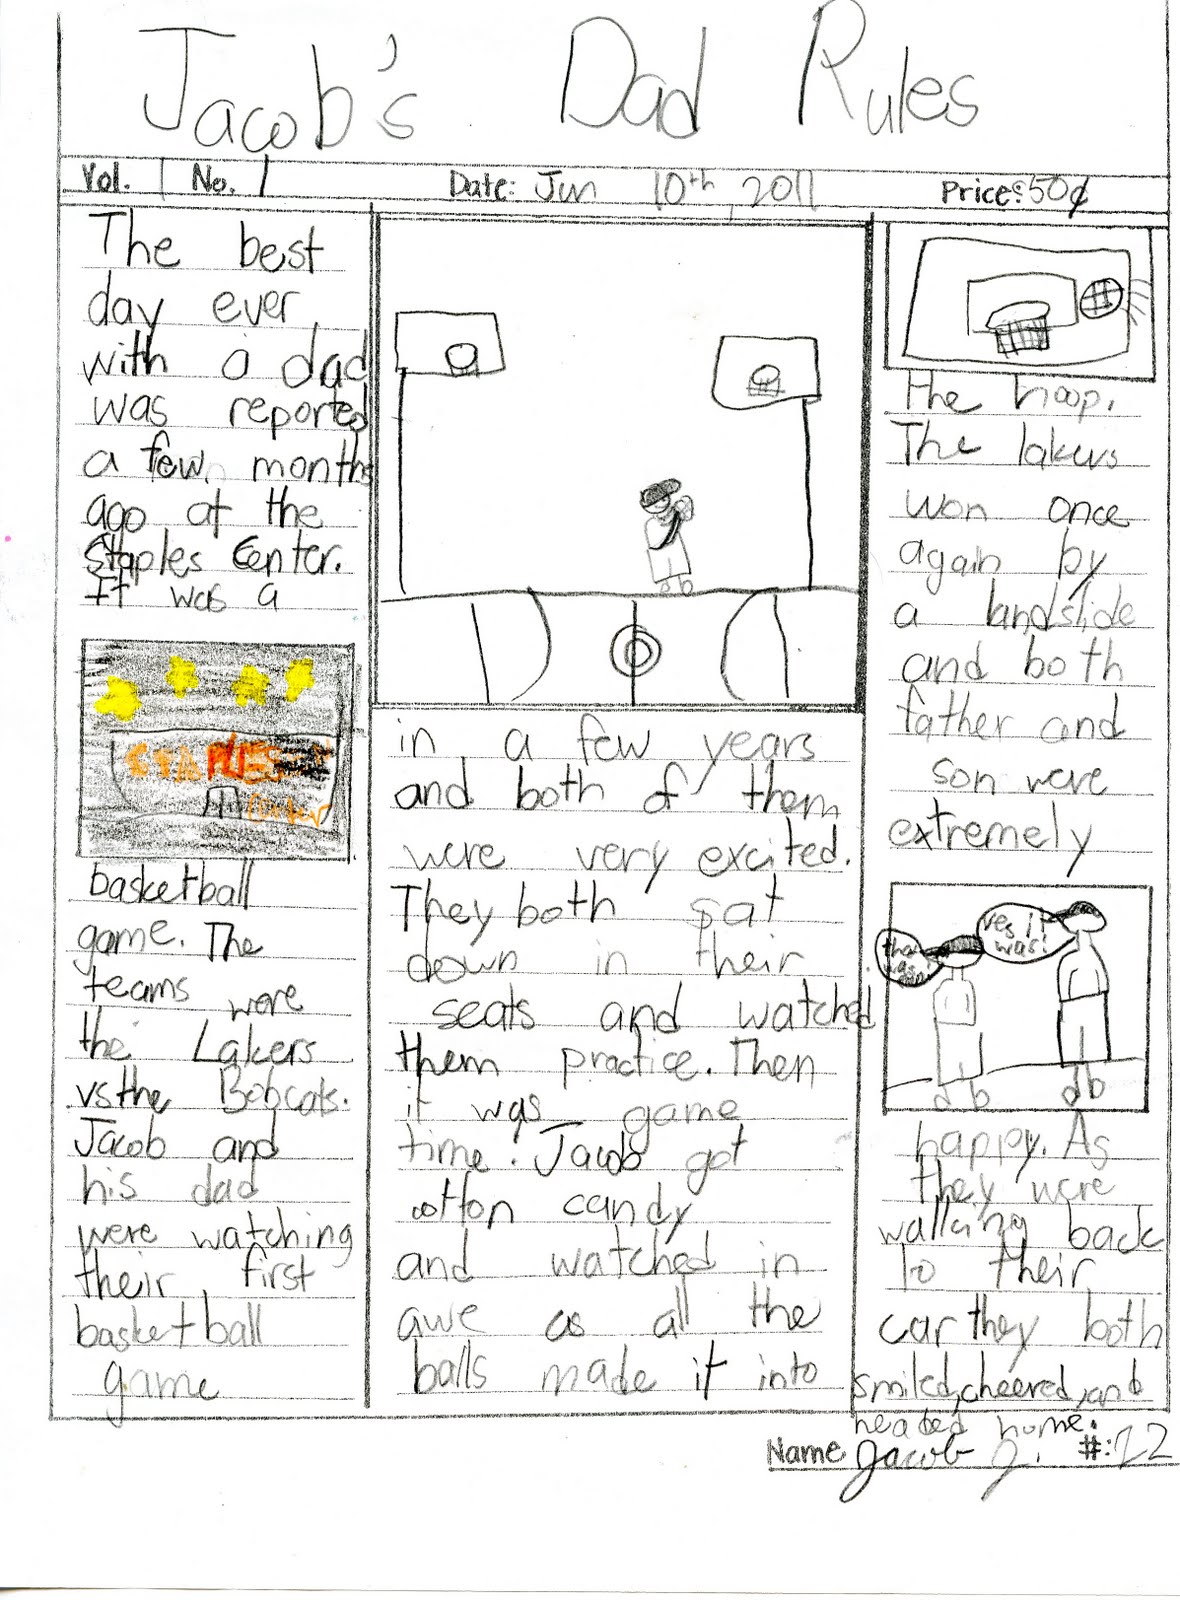 Jacob's Dad Rules
Vol. 1 No. 1 Date: Jun 10th, 2011 Price: 50¢
The best
day ever
with a dad
was reported
a few months
ago at the
Staples Center.
It was a
STAPLES
Center
basketball
game. The
teams were
the Lakers
vs the Bobcats.
Jacob and
his dad
were watching
their first
basketball
game
in a few years
and both of them
were very excited.
They both sat
down in their
seats and watched
them practice. Then
it was game
time. Jacob got
cotton candy
and watched in
awe as all the
balls made it into
the hoop.
The lakers
won once
again by
a landslide
and both
father and
son were
extremely
that was
yes it
was!
happy. As
they were
walking back
to their
car they both
smiled, cheered, and
headed home.
Name Jacob J. #: 22